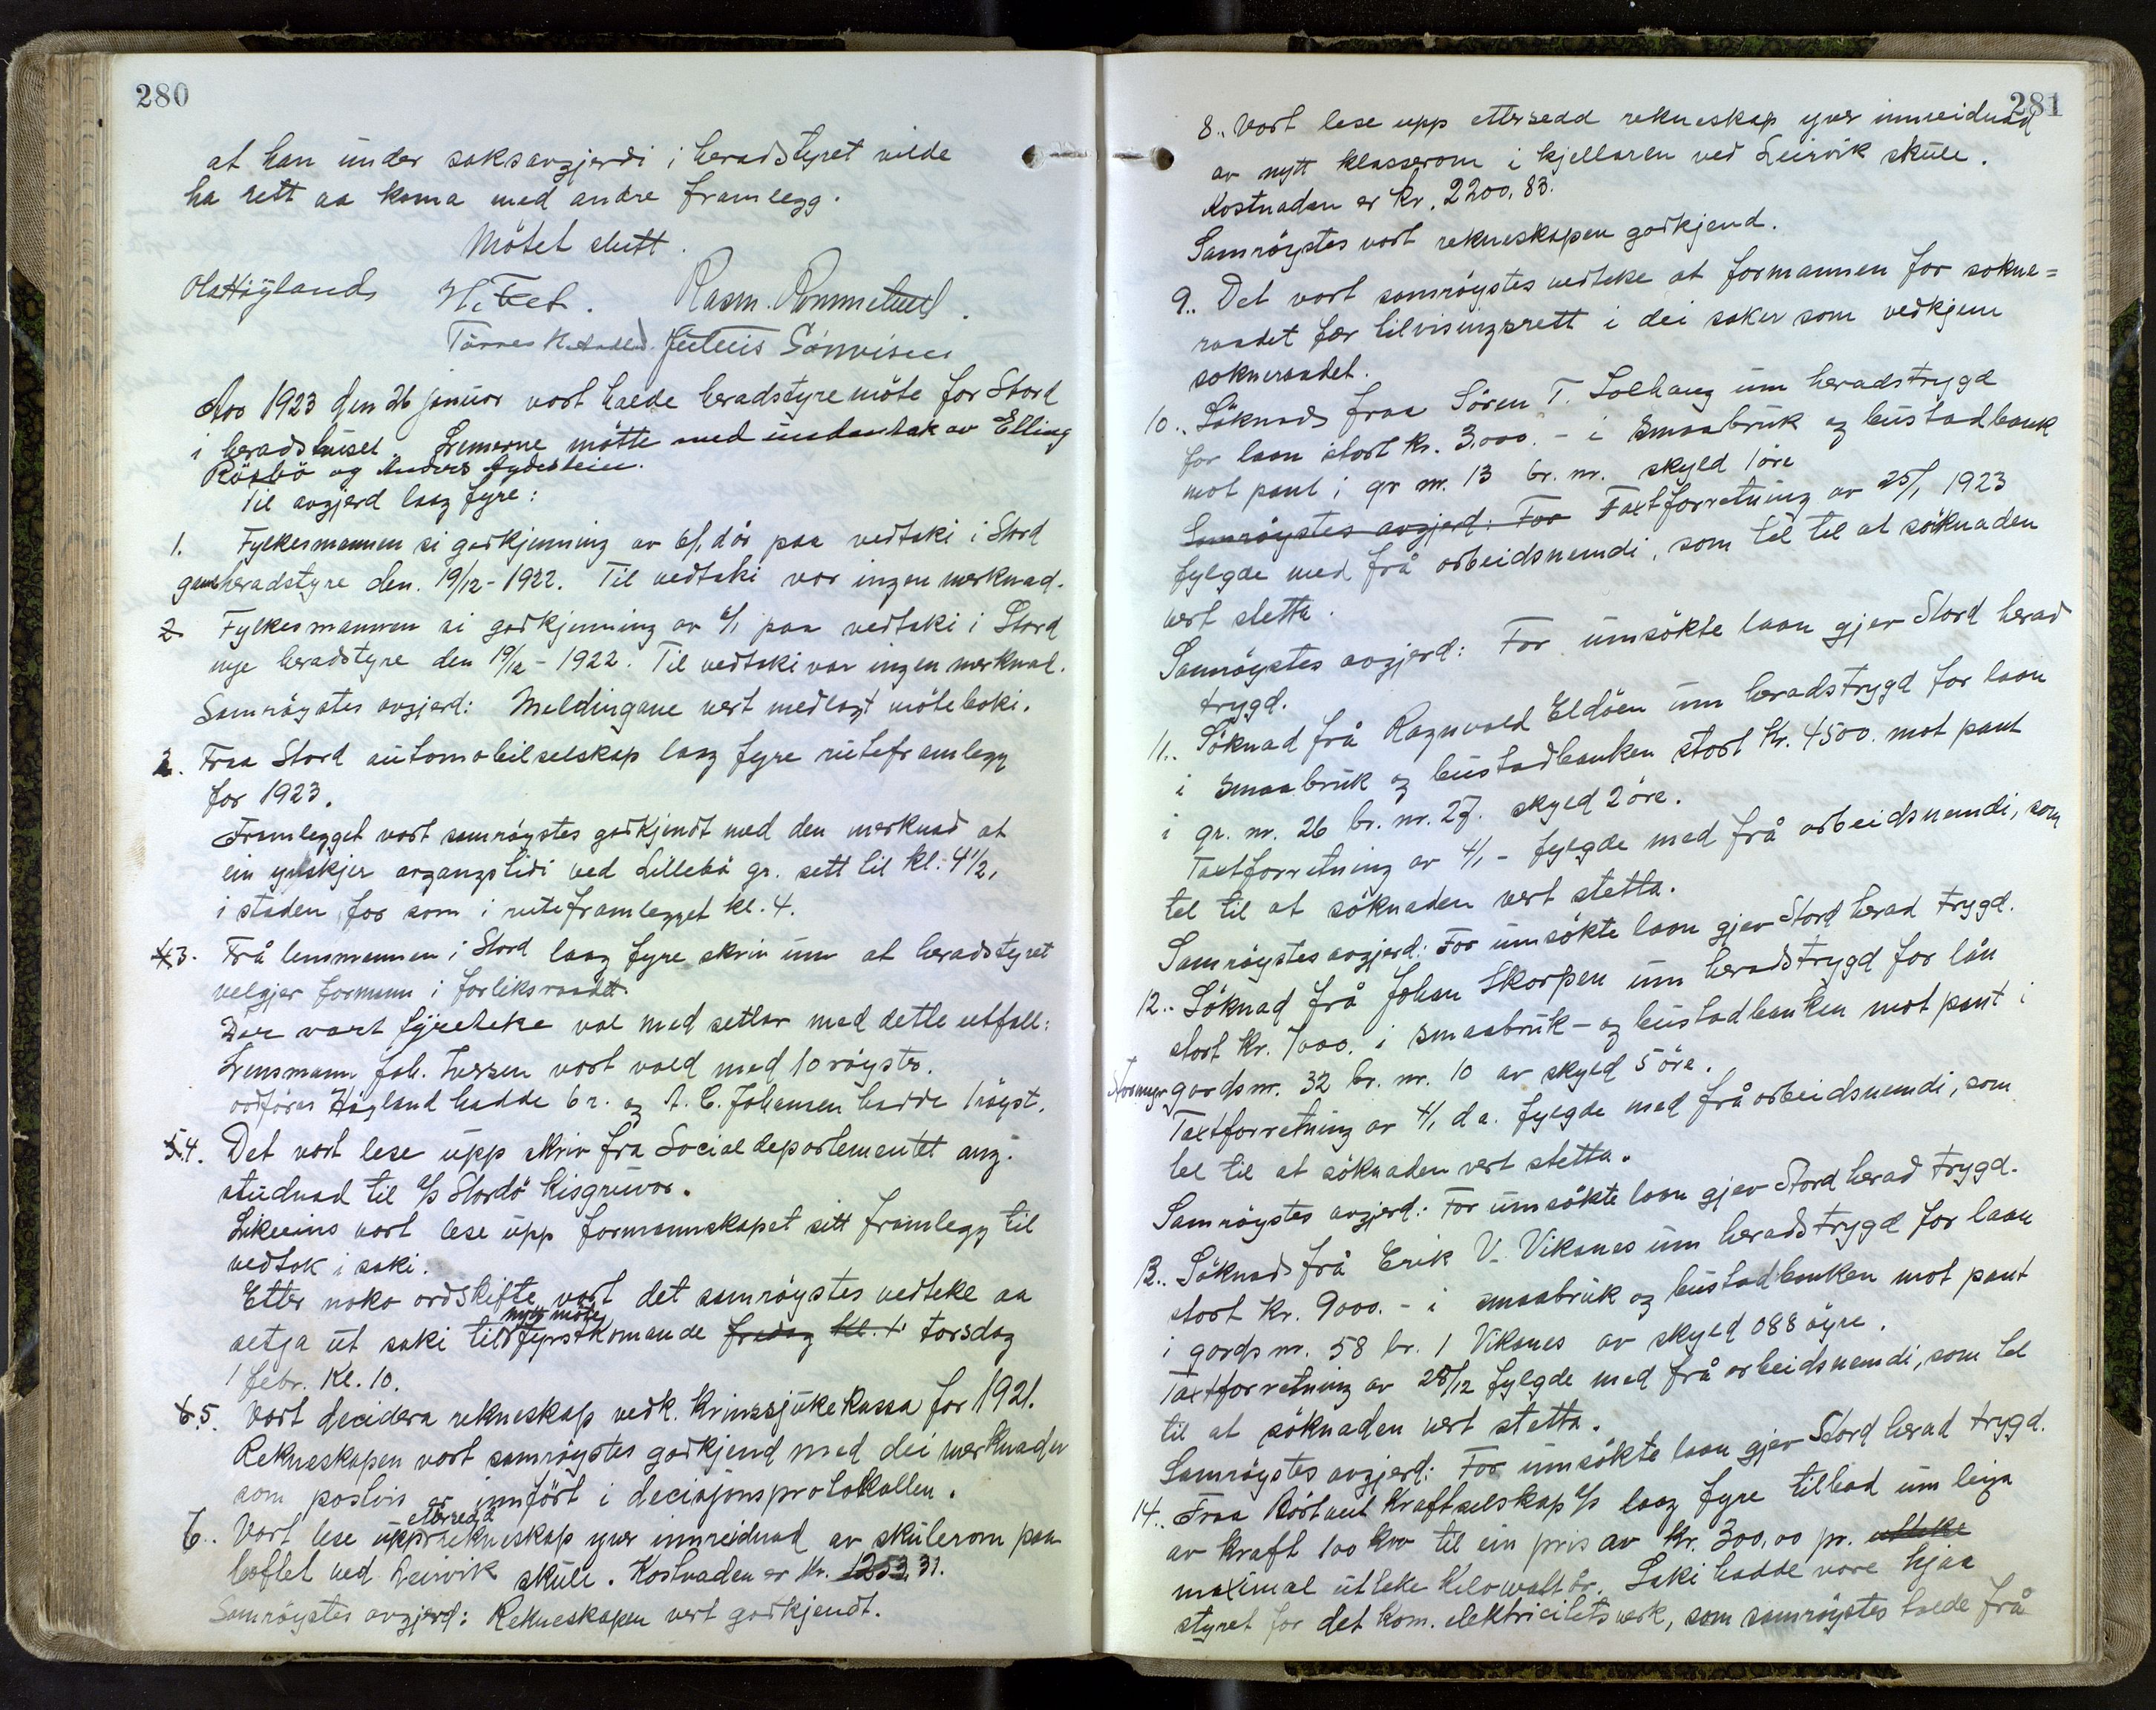 280
at han under saksavgjerdi i heradstyret vilde
ha rett aa koma med andre framlegg.
Mötet slutt.
Ola Høyland H. Fet. Rasm. Rommetveit.
Julius Sörvisen
Aar 1923 den 26 januar vart halde heradstyremöte for Stord
i heradshuset. Lemerne mötte med undantak av Elling
Rösbö og Anders Aydestein.
Til avgjerd laag fyre:
1. Fylkesmannen si godkjenning av 6/1 d år paa vedtaki i Stord
gamle heradstyre den. 19/12-1922. Til vedtaki var ingen merknad.
2 Fylkesmannen si godkjenning av 6/1 paa vedtaki i Stord
nye heradstyre den 19/12-1922. Til vedtaki var ingen merknad.
Samröystes avgjerd: Meldingane vert medlagt möteboki.
2. Fraa Stord automobilselskap laag fyre ruteframlegg
for 1923.
Framlegget vart samröystes godkjendt med den merknad at
ein ynskjer avgangstidi ved Lillebö gr. sett til kl. 4½,
i staden for som i ruteframlegget kl. 4.
3. Frå lensmannen i Stord laag fyre skriv um at heradstyret
velgjer formann i forliksraadet.
Der vart fyreteke val med setlar med dette utfall:
Lensmann Joh. Iversen vart vald med 10 röyster.
ordförar Høyland hadde 6 r. og A. C. Johansen hadde 1 röyst.
4. Det vart lese upp skriv fra Socialdepartementet ang.
studnad til a/s Stordö Kisgruvor.
Likeeins vart lese upp formannskapet sitt framlegg til
vedtak i saki.
Etter noko ordskifte vart det samröystes vedteke aa
setja ut saki til nytt möte fyrstkomande fredag kl. 4 torsdag
1 febr. Kl. 10.
5. Vart decidera rekneskap vedk. Krinssjukekassa for 1921.
Rekneskapen vart samröystes godkjend med dei merknader
som postvis er innfört i decisjonsprotokollen.
6. Vart lese upp ettersedd rekneskap yver innreidnad av skulerom paa
loftet ved Leirvik skule. Kostnaden er Kr. 1253,31.
Samröystes avgjerd: Rekneskapen vert godkjendt.
281
8. Vart lese upp ettersedd rekneskap yver innreidnad
av nytt klasserom i kjellaren ved Leirvik skule.
Kostnaden er kr. 2200,83.
Samröystes vart rekneskapen godkjend.
9. Det vart samröystes vedteke at formannen for sokne=
raadet fær tilvisingsrett i dei saker som vedkjem
sokneraadet.
10. Söknad fraa Sören T. Solhaug um heradstrygd
for laan stort kr. 3000.- i Smaabruk og bustadbank
mot pant i gr nr. 13 br. nr. skyld 1 öre
Samröystes avgjerd: For Taxtforretning av 25/1 1923
fylgde med frå arbeidsnemdi, som til til at söknaden
vert stetta.
Samröystes avgjerd: For umsökte laan gjev Stord herad
trygd.
11. Söknad frå Ragnvald Eldöen um heradstrygd for laan
i Smaabruk og bustadbanken stort Kr. 4500. mot pant
i gr. nr. 26 br. nr. 27. skyld 2 öre.
Taxtforretning av 4/1 - fylgde med frå arbeidsnemdi, som
tel til at söknaden vert stetta.
Samröystes avgjerd: For umsökte laan gjev Stord herad trygd.
12. Söknad frå Johan Skorpen um heradstrygd for lån
stort Kr. 7000. i Smaabruk- og bustadbanken mot pant i
gardsnr. 32 br. nr. 10 av skyld 5 öre.
Taxtforretning av 4/1 d a. fylgde med frå arbeidsnemdi, som
tel til at söknaden vert stetta.
Samröystes avgjerd: For umsökte laan gjev Stord herad trygd.
13. Söknad frå Erik V. Vikanes um heradstrygd for laan
stort kr. 9000.- i smaabruk og bustadbanken mot pant
i gards nr. 58 br. 1 Vikanes av skyld 088 öyre.
Taxtforretning av 28/12 fylgde med frå arbeidsnemdi, som tel
til at söknaden vert stetta.
Samröystes avgjerd: For umsökte laan gjev Stord herad trygd.
14. Fraa Kraftselskap a/s laag fyre tilbod um leiga
av kraft 100 kw til ein pris av kr. 300,00 pr. utteke
maximal utteke kilowattår. Saki hadde vore hjaa
styret for det kom. elektricitetsverk, som samröystes raade frå